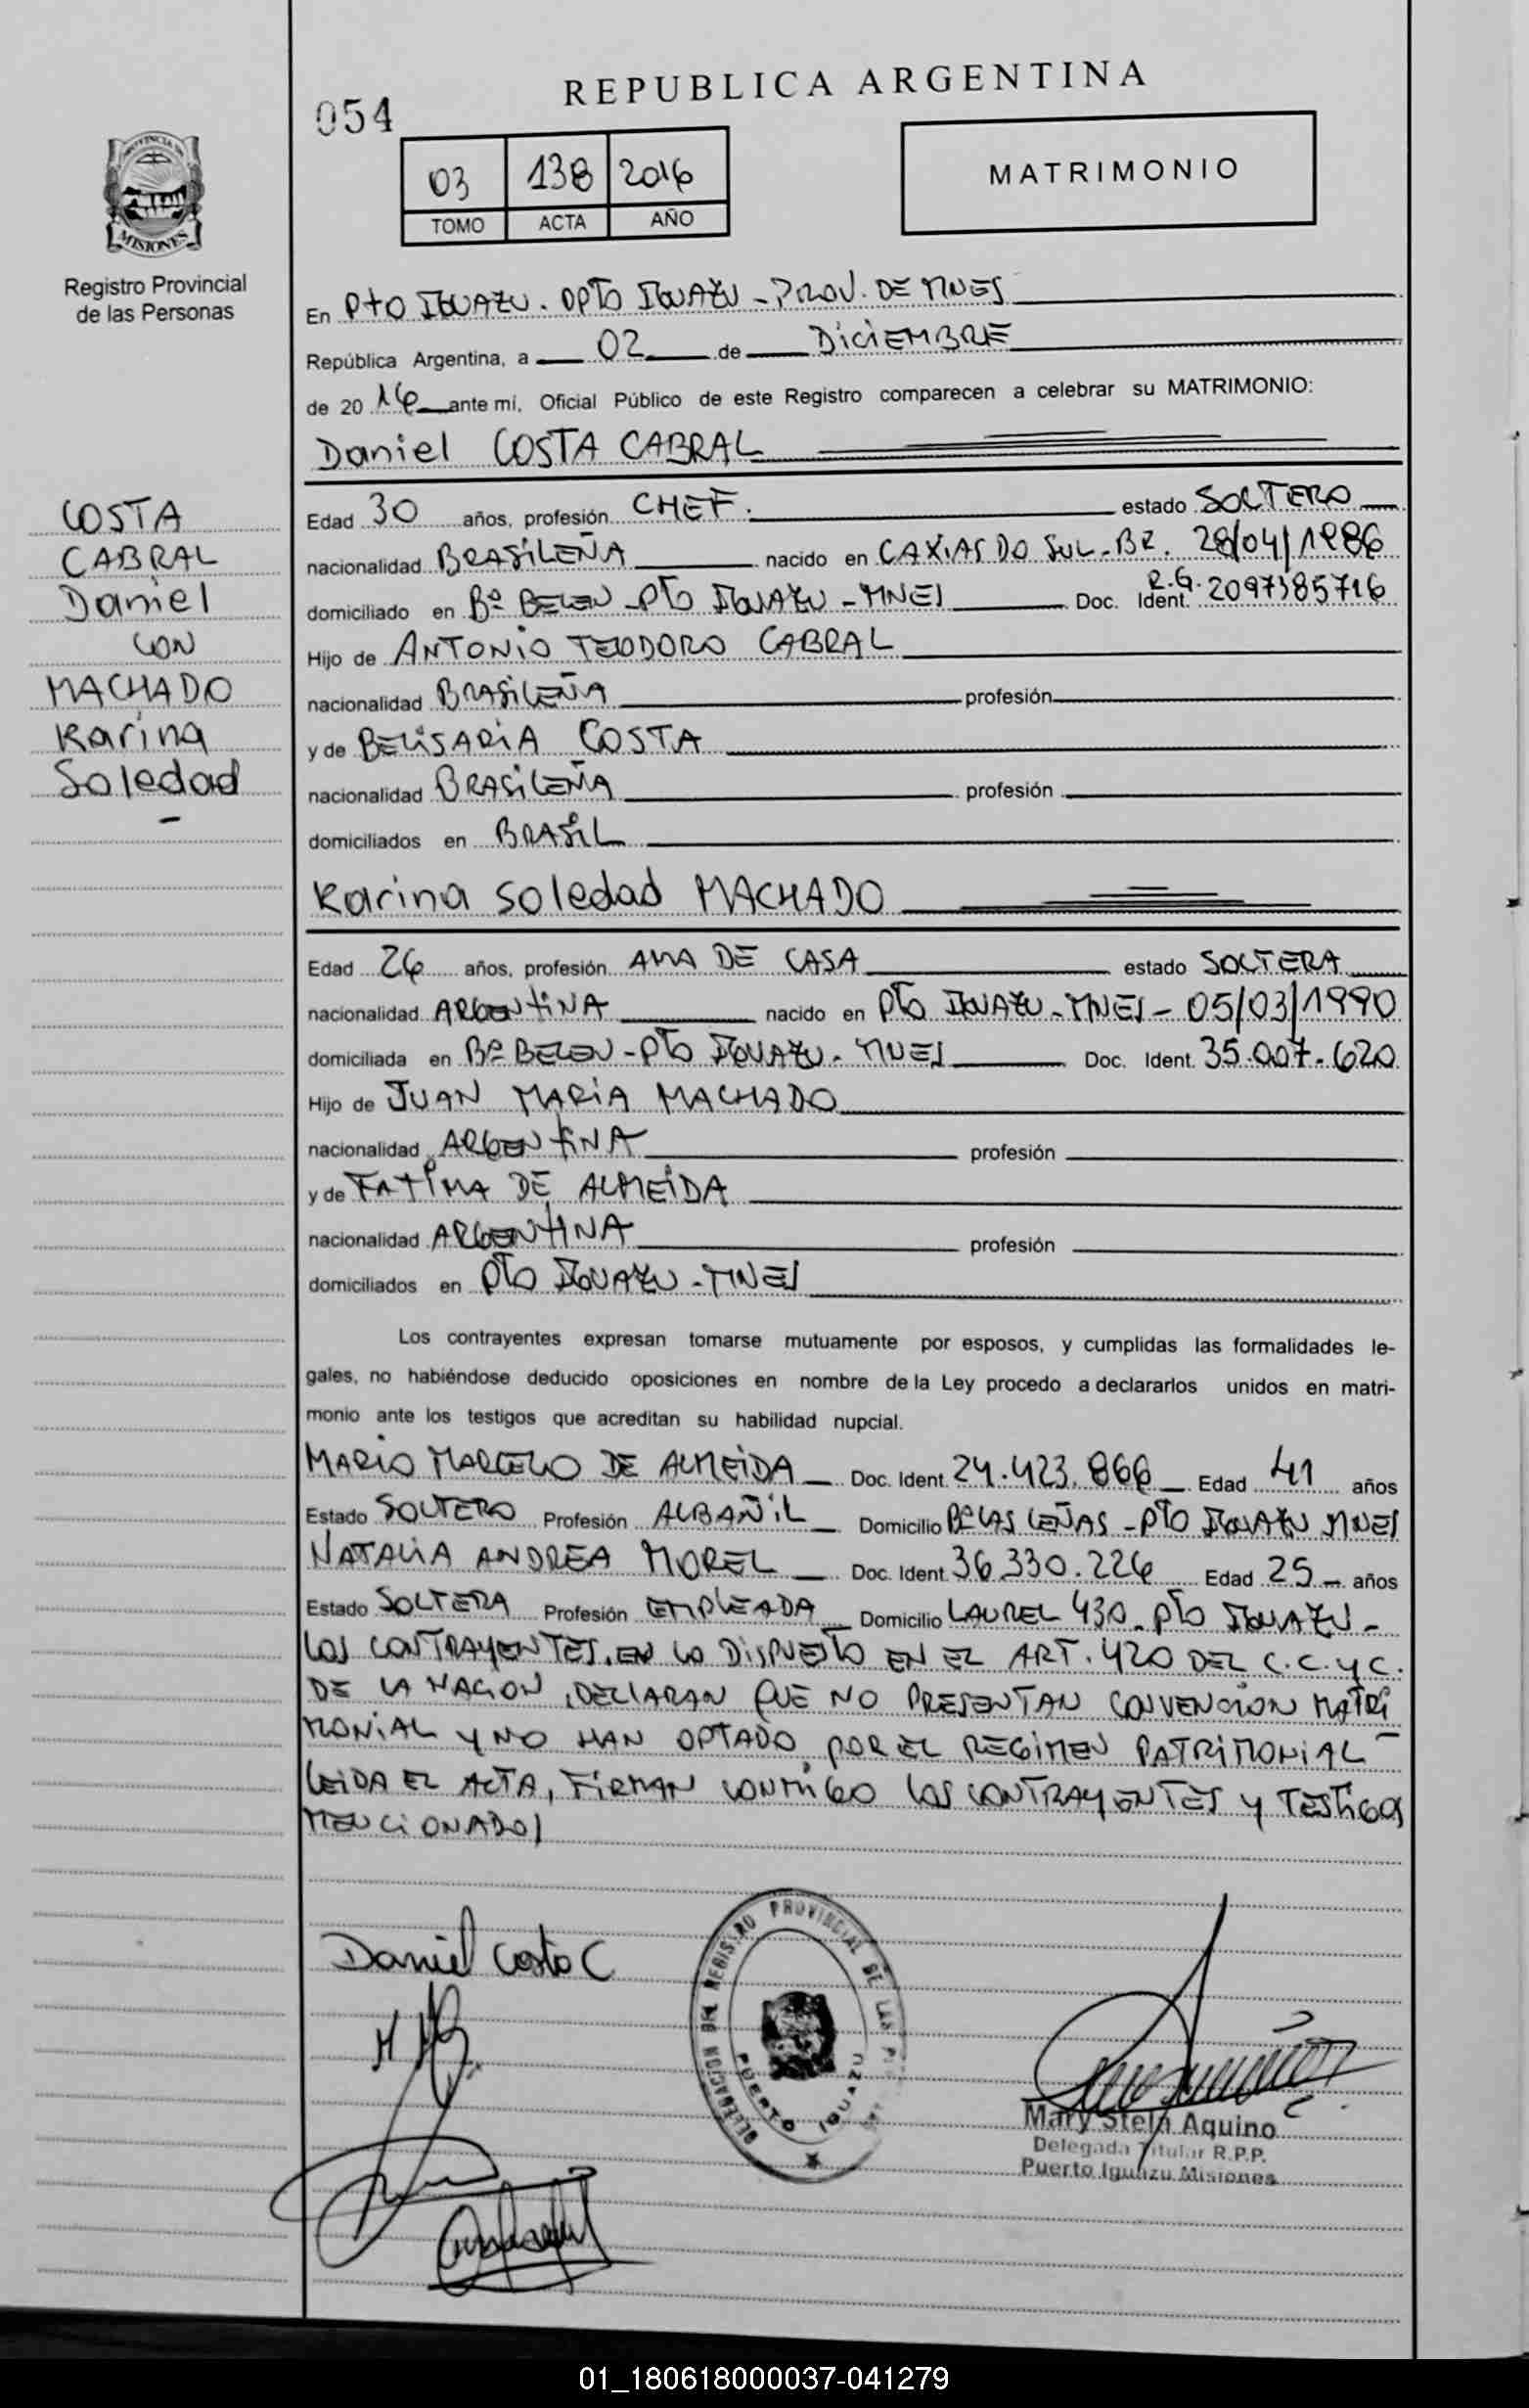 REPUBLICA ARGENTINA
054
03 138 2016
TOMO ACTA AÑO
MATRIMONIO
PROVINCIA DE
MISIONES
Registro Provincial
de las Personas
En Pto IGUAZU. DPTO IGUAZU - PROV. DE MNES
República Argentina, a 02 de DICIEMBRE
de 2016 ante mi, Oficial Público de este Registro comparecen a celebrar su MATRIMONIO:
Daniel COSTA CABRAL
COSTA
CABRAL
Daniel
CON
MACHADO
Karina
Soledad
-
Edad 30 años, profesión CHEF. estado SOLTERO
nacionalidad BRASILEÑA nacido en CAXIAS DO SUL - BR. 28/04/1986
domiciliado en Bº BELEN - PTO IGUAZU - MNES Doc. Ident. R.G. 2097385716
Hijo de ANTONIO TEODORO CABRAL
nacionalidad BRASILEÑA profesión
y de BELISARIA COSTA
nacionalidad BRASILEÑA profesión
domiciliados en BRASIL
Karina Soledad MACHADO
Edad 26 años, profesión AMA DE CASA estado SOLTERA
nacionalidad ARGENTINA nacido en PTO IGUAZU - MNES - 05/03/1990
domiciliada en Bº BELEN - PTO IGUAZU - MNES Doc. Ident. 35.007.620
Hijo de JUAN MARIA MACHADO
nacionalidad ARGENTINA profesión
y de FATIMA DE ALMEIDA
nacionalidad ARGENTINA profesión
domiciliados en PTO IGUAZU - MNES
Los contrayentes expresan tomarse mutuamente por esposos, y cumplidas las formalidades le-
gales, no habiéndose deducido oposiciones en nombre de la Ley procedo a declararlos unidos en matri-
monio ante los testigos que acreditan su habilidad nupcial.
MARIO MARCELO DE ALMEIDA Doc. Ident. 24.423.866 Edad 41 años
Estado SOLTERO Profesión ALBAÑIL Domicilio Bº LAS LEÑAS - PTO IGUAZU MNES
NATALIA ANDREA MOREL Doc. Ident. 36.330.226 Edad 25 años
Estado SOLTERA Profesión EMPLEADA Domicilio LAUREL 430 - PTO IGUAZU -
LOS CONTRAYENTES, EN LO DISPUESTO EN EL ART. 420 DEL C.C.y C.
DE LA NACION, DECLARAN QUE NO PRESENTAN CONVENCION MATRI
MONIAL Y NO HAN OPTADO POR EL REGIMEN PATRIMONIAL -
LEIDA EL ACTA, FIRMAN CONMIGO LOS CONTRAYENTES Y TESTIGOS
MENCIONADOS
Daniel Costa C
DELEGACION DEL REGISTRO PROVINCIAL DE LAS
PUERTO IGUAZU
Mary Stela Aquino
Delegada Titular R.P.P.
Puerto Iguazu Misiones
01_180618000037-041279